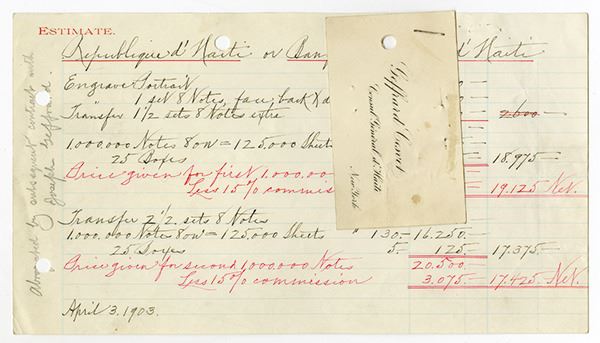 ESTIMATE.
Republique d'Haiti or Banq d'Haiti
Engrave Portrait
" 1 set 8 Notes, face, back &
Transfer 1 1/2 sets 8 Notes extra 2600—
1.000.000 Notes 8 on = 125.000 Sheets
25 Boxes 18.975—
Price given for first 1.000.00
Less 15% commiss 19.125 Net.
Transfer 2 1/2 sets 8 Notes
1.000.000 Notes 8 on = 125.000 Sheets " 130.— 16.250.—
25 Boxes 5.— 125.— 17.375.—
Price given for second 1.000.000 Notes 20.500.—
Less 15% commission 3.075.— 17.425. Net.
April 3. 1903.
by subsequent contract with
Joseph
Geffrard Cesvet
Consul Général d'Haïti
New York